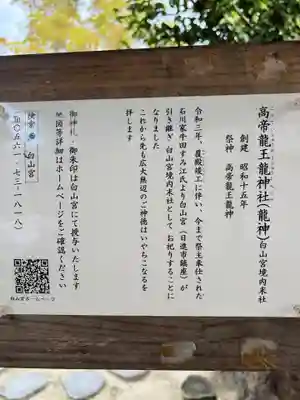 高帝龍王龍神社(龍神)白山宮境内末社
創建 昭和十五年
祭神 高帝龍王龍神
令和二年、覆殿竣工に伴い、今まで祭主奉仕された
石川家牛田すみ江氏より白山宮(日進市鎮座)が
引き継ぎ、白山宮境内末社として お祀りすることに
なりました
これから先も広大無辺のご神徳はいやちこなるを
拝します
御神札・御朱印は白山宮にて授与いたします
地図等詳細はホームページをご確認ください
白山宮
℡〇五六一‐七三‐一八一八
白山宮ホームページ